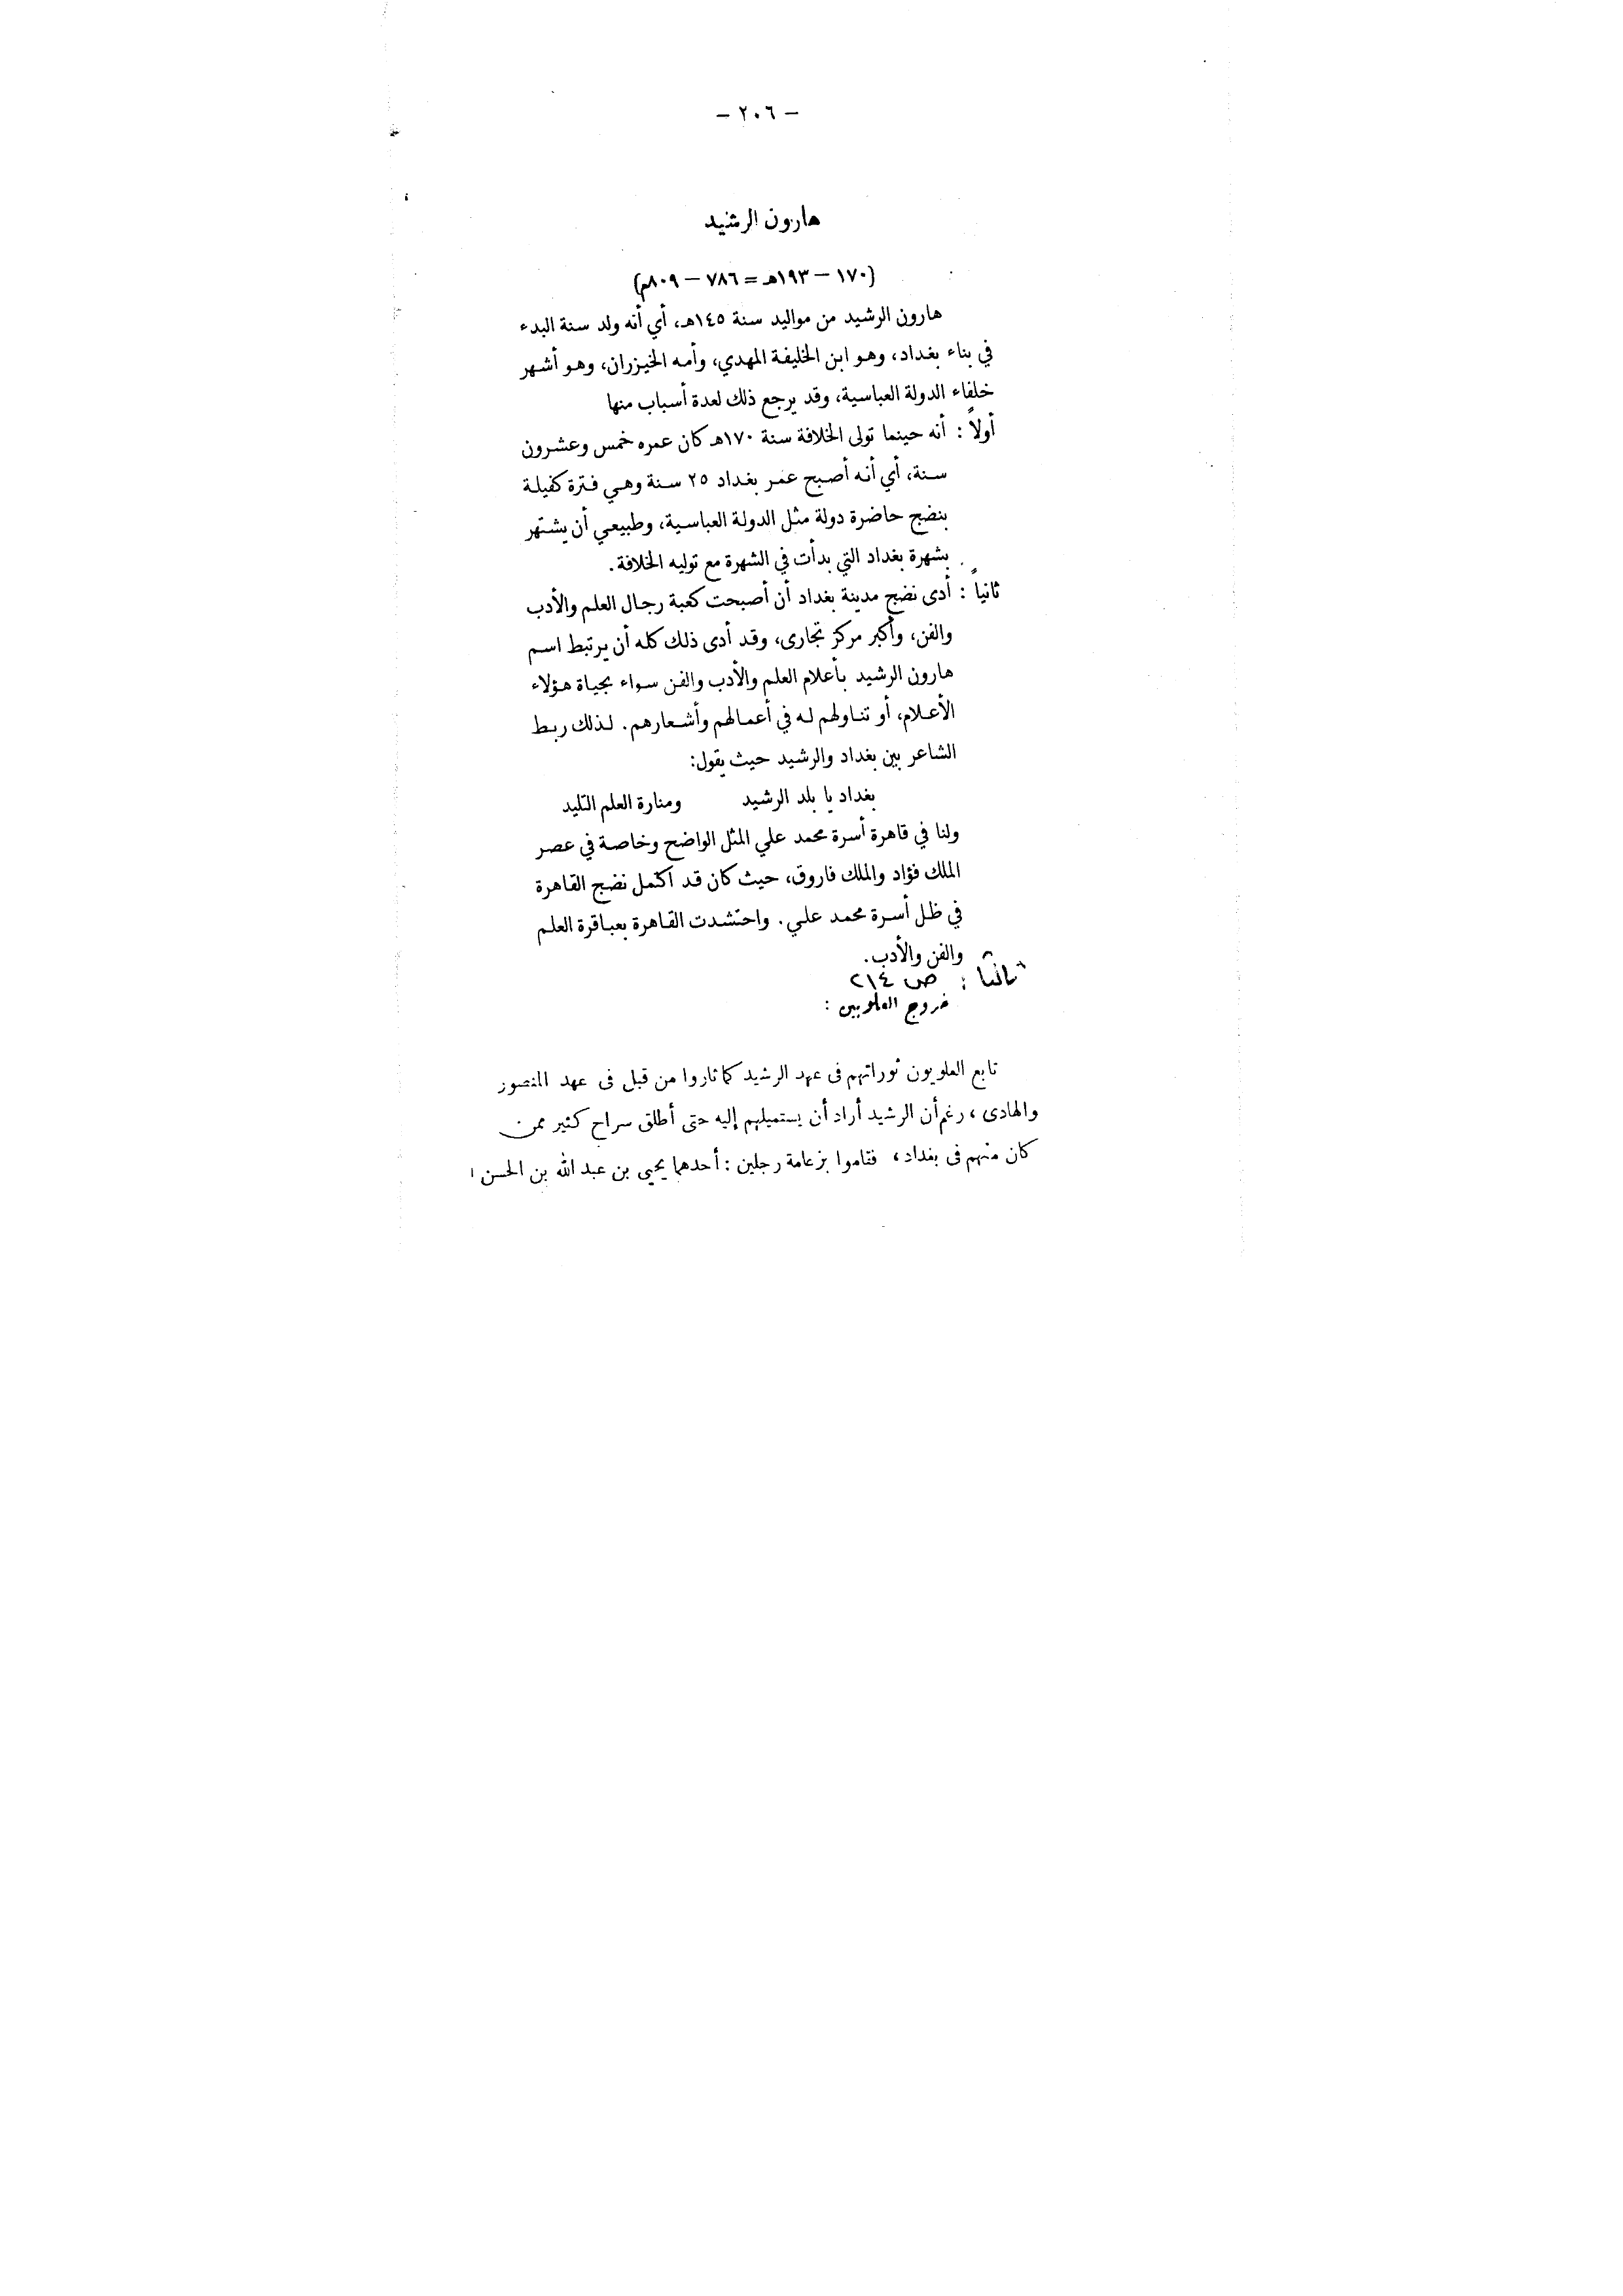 – ٢٠٦ –
هارون الرشيد
(١٧٠ – ١٩٣هـ = ٧٨٦ – ٨٠٩م)
هارون الرشيد من مواليد سنة ١٤٥هـ، أي أنه ولد سنة البدء
في بناء بغداد، وهو ابن الخليفة المهدي، وأمه الخيزران، وهو أشهر
خلفاء الدولة العباسية، وقد يرجع ذلك لعدة أسباب منها
أولاً : أنه حينما تولى الخلافة سنة ١٧٠هـ كان عمره خمس وعشرون
سنة، أي أنه أصبح عمر بغداد ٢٥ سنة وهي فترة كفيلة
بنضج حاضرة دولة مثل الدولة العباسية، وطبيعي أن يشتهر
بشهرة بغداد التي بدأت في الشهرة مع توليه الخلافة.
ثانياً : أدى نضج مدينة بغداد أن أصبحت كعبة رجال العلم والأدب
والفن، وأكبر مركز تجارى، وقد أدى ذلك كله أن يرتبط اسم
هارون الرشيد بأعلام العلم والأدب والفن سواء بحياة هؤلاء
الأعلام، أو تناولهم له في أعمالهم وأشعارهم. لذلك ربط
الشاعر بين بغداد والرشيد حيث يقول:
بغداد يا بلد الرشيد ومنارة العلم التليد
ولنا في قاهرة أسرة محمد علي المثل الواضح وخاصة في عصر
الملك فؤاد والملك فاروق، حيث كان قد اكتمل نضج القاهرة
في ظل أسرة محمد علي. واحتشدت القاهرة بعباقرة العلم
والفن والأدب.
ثالثاً : ص ٢١٤
خروج العلويين :
تابع العلويون ثوراتهم فى عهد الرشيد كما ثاروا من قبل فى عهد المنصور
والهادى ، رغم أن الرشيد أراد أن يستميلهم إليه حتى أطلق سراح كثير ممن
كان منهم فى بغداد ، فقاموا بزعامة رجلين : أحدهما يحيى بن عبد الله بن الحسن